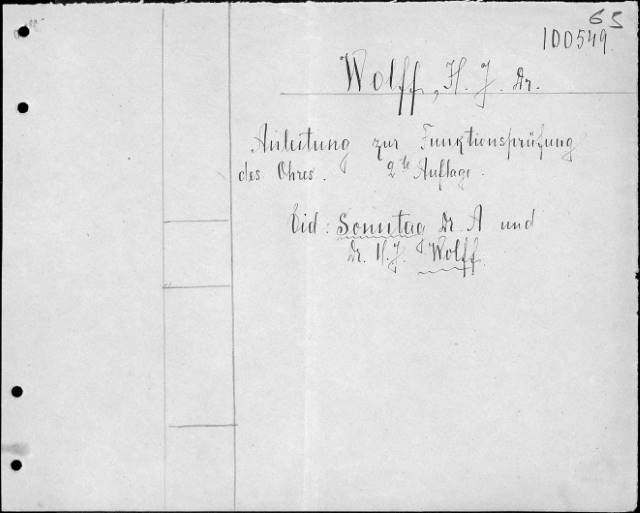 65
100549.
Wolff, H. J. Dr.
Anleitung zur Funktionsprüfung
des Ohres. 2te Auflage.
Eid: Sonntag Dr. A und
Dr. H. J. Wolff.